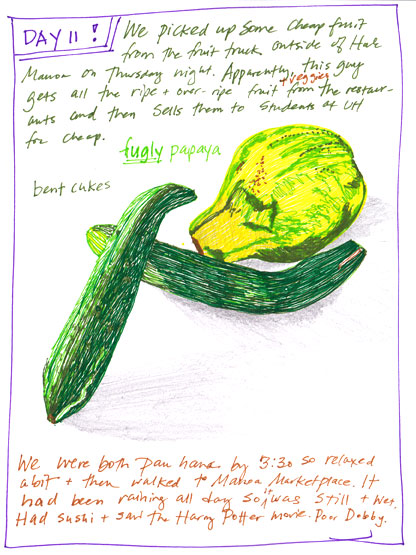 DAY 11!
We picked up some cheap fruit
from the fruit truck outside of Hale
Manoa on Thursday night. Apparently, this guy
+ veggies
gets all the ripe + over-ripe fruit from the restaur-
ants and then sells them to students at UH
for cheap.
fugly papaya
bent cukes
We were both pau hana by 3:30 so relaxed
a bit + then walked to Manoa Marketplace. It
had been raining all day so it was still + wet.
Had sushi + saw the Harry Potter movie. Poor Dobby.